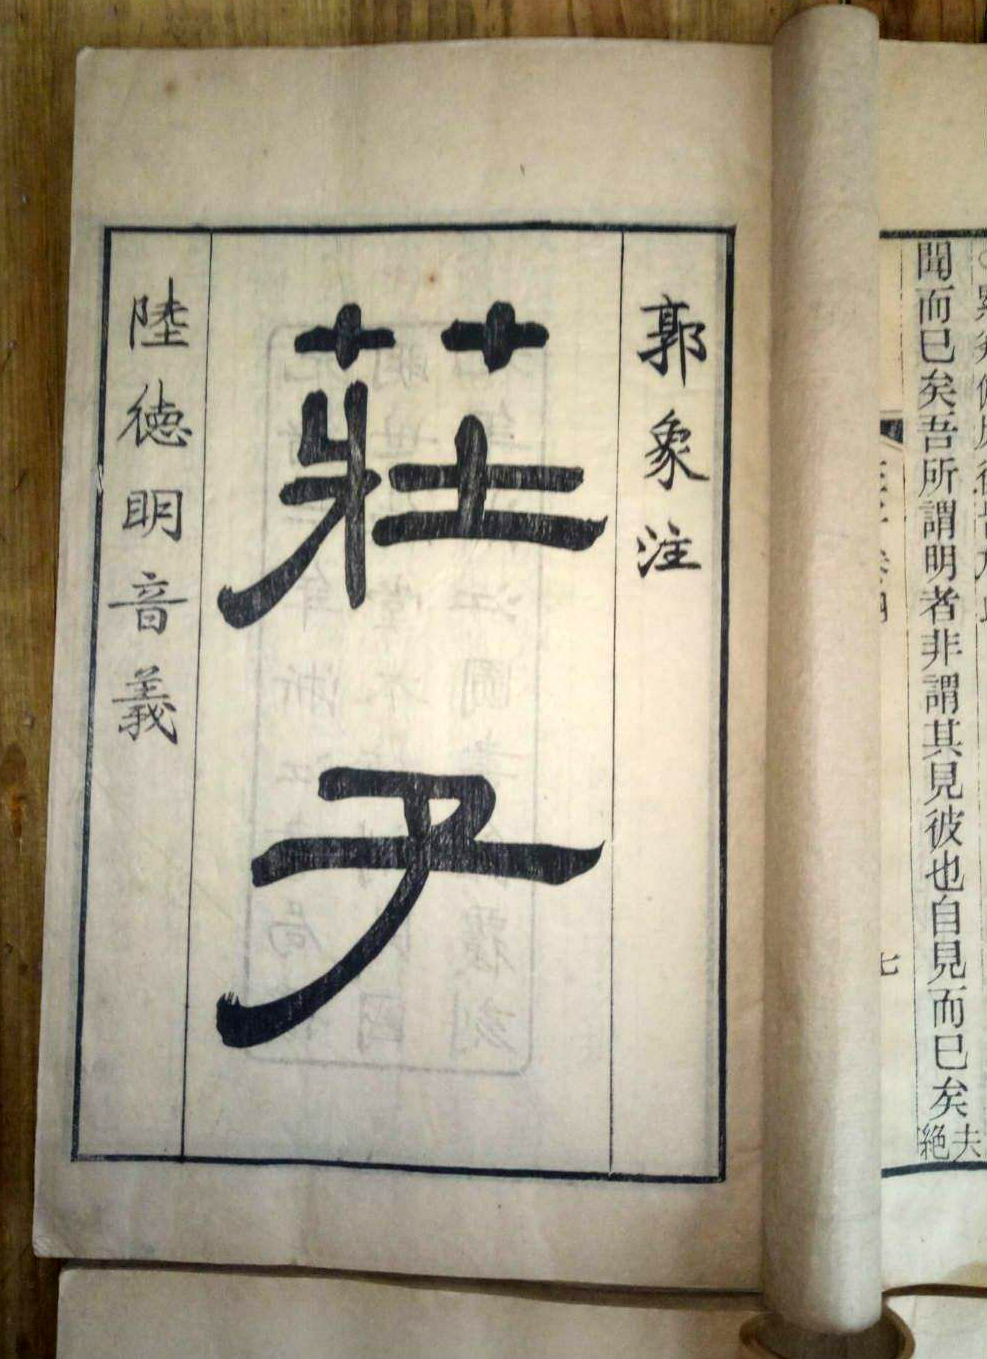 聞而已矣吾所謂明者非謂其見彼也自見而已矣夫絶
七
郭象注
莊子
陸德明音義